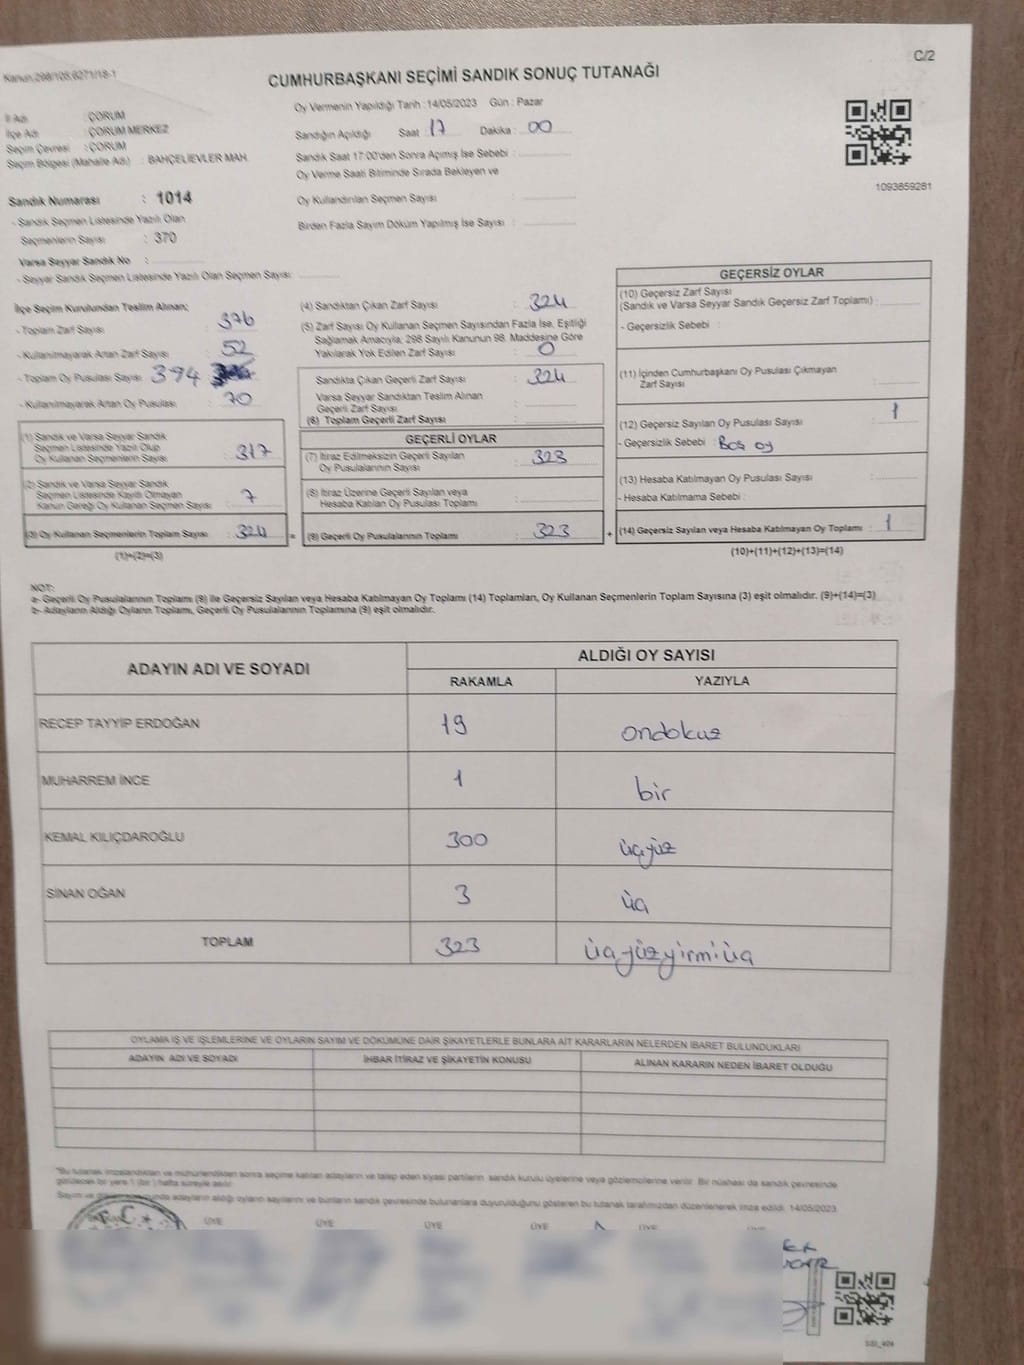 Kanun:298/105,6271/18-1
C/2
CUMHURBAŞKANI SEÇİMİ SANDIK SONUÇ TUTANAĞI
İl Adı : ÇORUM
İlçe Adı : ÇORUM MERKEZ
Seçim Çevresi : ÇORUM
Seçim Bölgesi (Mahalle Adı) : BAHÇELİEVLER MAH.
Sandık Numarası : 1014
- Sandık Seçmen Listesinde Yazılı Olan
Seçmenlerin Sayısı : 370
Varsa Seyyar Sandık No :
- Seyyar Sandık Seçmen Listesinde Yazılı Olan Seçmen Sayısı:
Oy Vermenin Yapıldığı Tarih :14/05/2023 Gün : Pazar
Sandığın Açıldığı Saat : 17 Dakika : 00
Sandık Saat 17:00'den Sonra Açımış İse Sebebi :
Oy Verme Saati Bitiminde Sırada Bekleyen ve
Oy Kullandırılan Seçmen Sayısı :
Birden Fazla Sayım Döküm Yapılmış İse Sayısı :
1093859281
İlçe Seçim Kurulundan Teslim Alınan;
- Toplam Zarf Sayısı : 376
- Kullanılmayarak Artan Zarf Sayısı : 52
- Toplam Oy Pusulası Sayısı : 394
- Kullanılmayarak Artan Oy Pusulası : 70
(1) Sandık ve Varsa Seyyar Sandık
Seçmen Listesinde Yazılı Olup
Oy Kullanan Seçmenlerin Sayısı : 317
(2) Sandık ve Varsa Seyyar Sandık
Seçmen Listesinde Kayıtlı Olmayan
Kanun Gereği Oy Kullanan Seçmen Sayısı : 7
(3) Oy Kullanan Seçmenlerin Toplam Sayısı : 324
(1)+(2)=(3)
(4) Sandıktan Çıkan Zarf Sayısı : 324
(5) Zarf Sayısı Oy Kullanan Seçmen Sayısından Fazla İse, Eşitliği
Sağlamak Amacıyla; 298 Sayılı Kanunun 98. Maddesine Göre
Yakılarak Yok Edilen Zarf Sayısı : 0
Sandıkta Çıkan Geçerli Zarf Sayısı : 324
Varsa Seyyar Sandıktan Teslim Alınan
Geçerli Zarf Sayısı :
(6) Toplam Geçerli Zarf Sayısı :
GEÇERLİ OYLAR
(7) İtiraz Edilmeksizin Geçerli Sayılan
Oy Pusulalarının Sayısı : 323
(8) İtiraz Üzerine Geçerli Sayılan veya
Hesaba Katılan Oy Pusulası Toplamı :
= (9) Geçerli Oy Pusulalarının Toplamı : 323
GEÇERSİZ OYLAR
(10) Geçersiz Zarf Sayısı
(Sandık ve Varsa Seyyar Sandık Geçersiz Zarf Toplamı) :
- Geçersizlik Sebebi :
(11) İçinden Cumhurbaşkanı Oy Pusulası Çıkmayan
Zarf Sayısı :
(12) Geçersiz Sayılan Oy Pusulası Sayısı : 1
- Geçersizlik Sebebi : Boş oy
(13) Hesaba Katılmayan Oy Pusulası Sayısı :
- Hesaba Katılmama Sebebi :
+ (14) Geçersiz Sayılan veya Hesaba Katılmayan Oy Toplamı : 1
(10)+(11)+(12)+(13)=(14)
NOT:
a- Geçerli Oy Pusulalarının Toplamı (9) ile Geçersiz Sayılan veya Hesaba Katılmayan Oy Toplamı (14) Toplamları, Oy Kullanan Seçmenlerin Toplam Sayısına (3) eşit olmalıdır. (9)+(14)=(3)
b- Adayların Aldığı Oyların Toplamı, Geçerli Oy Pusulalarının Toplamına (9) eşit olmalıdır.
ADAYIN ADI VE SOYADI ALDIĞI OY SAYISI
RAKAMLA YAZIYLA
RECEP TAYYİP ERDOĞAN 19 ondokuz
MUHARREM İNCE 1 bir
KEMAL KILIÇDAROĞLU 300 üçyüz
SİNAN OĞAN 3 üç
TOPLAM 323 üçyüzyirmiüç
OYLAMA İŞ VE İŞLEMLERİNE VE OYLARIN SAYIM VE DÖKÜMÜNE DAİR ŞİKAYETLERLE BUNLARA AİT KARARLARIN NELERDEN İBARET BULUNDUKLARI
ADAYIN ADI VE SOYADI İHBAR İTİRAZ VE ŞİKAYETİN KONUSU ALINAN KARARIN NEDEN İBARET OLDUĞU
*Bu tutanak imzalandıktan ve mühürlendikten sonra seçime katılan adayların ve talep eden siyasi partilerin sandık kurulu üyelerine veya gözlemcilerine verilir. Bir nüshası da sandık çevresinde
görülecek bir yere 1 (bir) hafta süreyle asılır.
Sayım ve adayların aldığı oyların sayılarını ve bunların sandık çevresinde bulunanlara duyurulduğunu gösteren bu tutanak tarafımızdan düzenlenerek imza edildi. 14/05/2023
ÜYE ÜYE ÜYE ÜYE ÜYE